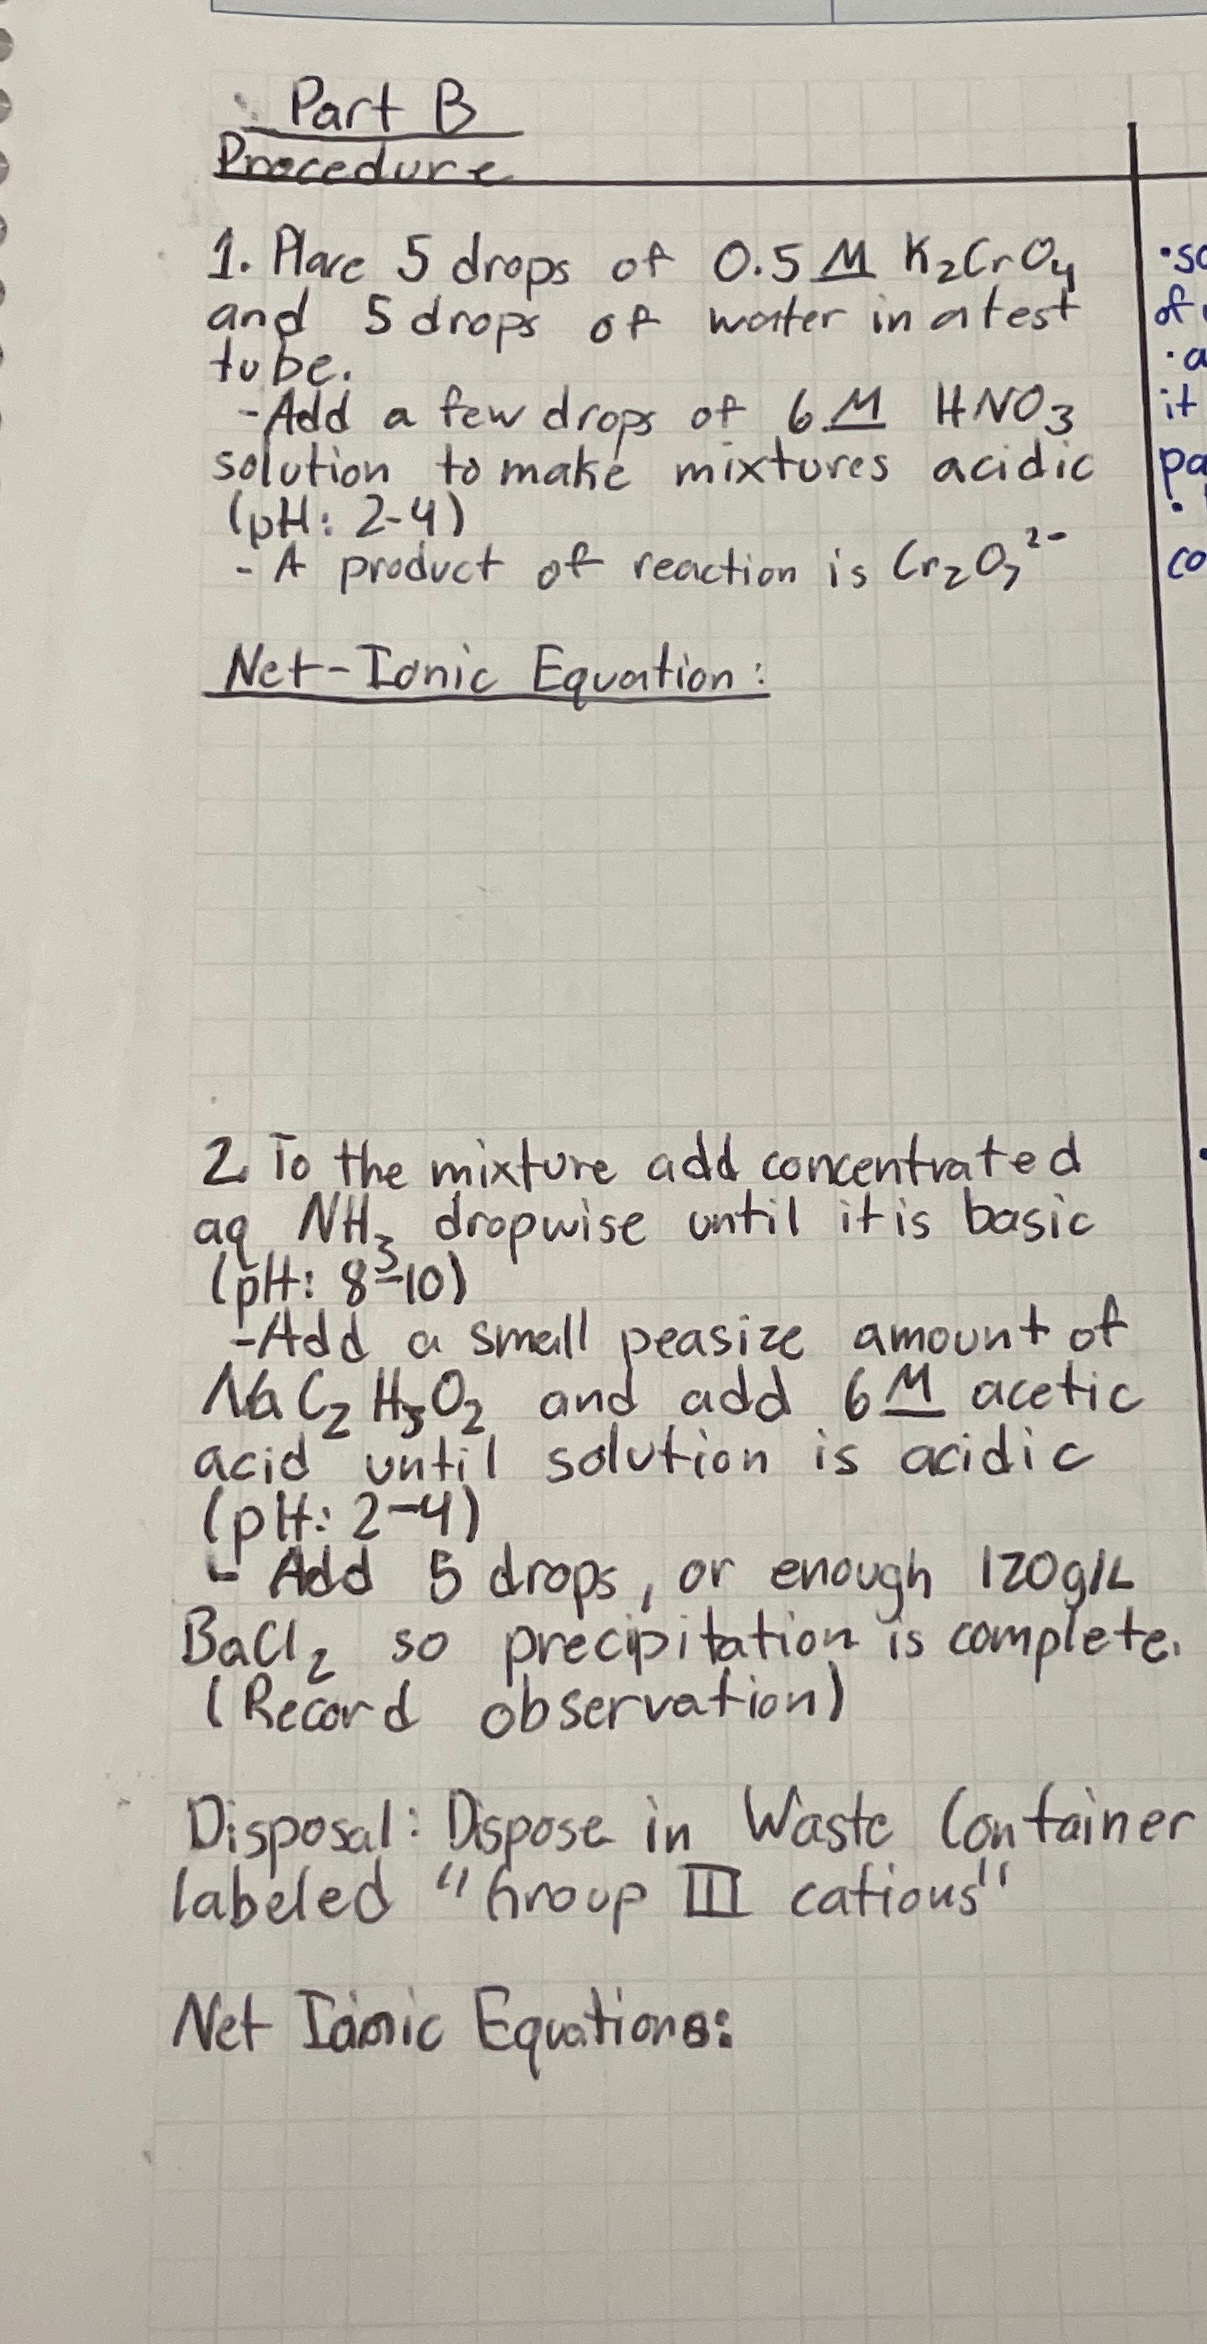 Part B
Procedure
1. Place 5 drops of 0.5 M K₂CrO₄
and 5 drops of water in a test
tube.
-Add a few drops of 6 M HNO₃
solution to make mixtures acidic
(pH: 2-4)
- A product of reaction is Cr₂O₇²⁻
Net-Ionic Equation:
2. To the mixture add concentrated
aq NH₃ dropwise until it is basic
(pH: 8-10)
-Add a small peasize amount of
NaC₂H₃O₂ and add 6 M acetic
acid until solution is acidic
(pH: 2-4)
- Add 5 drops, or enough 120g/L
BaCl₂ so precipitation is complete.
(Record observation)
Disposal: Dispose in Waste Container
labeled "Group III cations"
Net Ionic Equations:
of
it